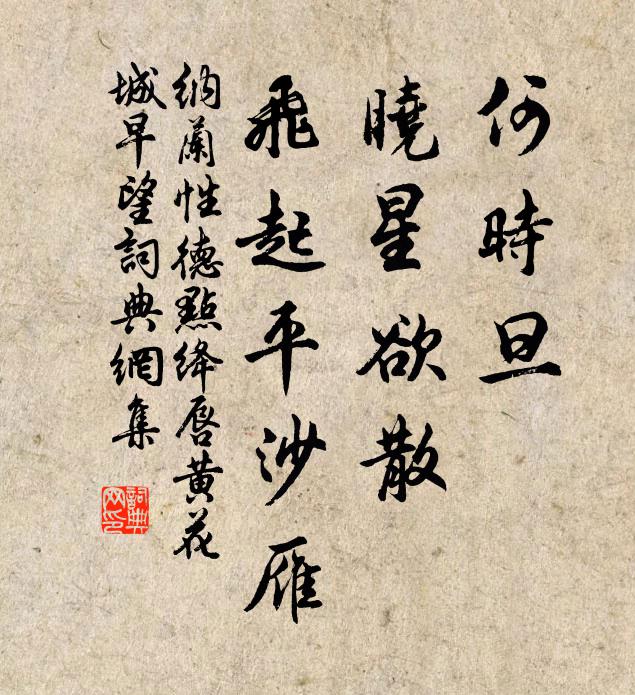 何時旦
曉星欲散
飛起平沙雁
納蘭性德點絳唇黄花
城早望詞典網集
詞典
网印